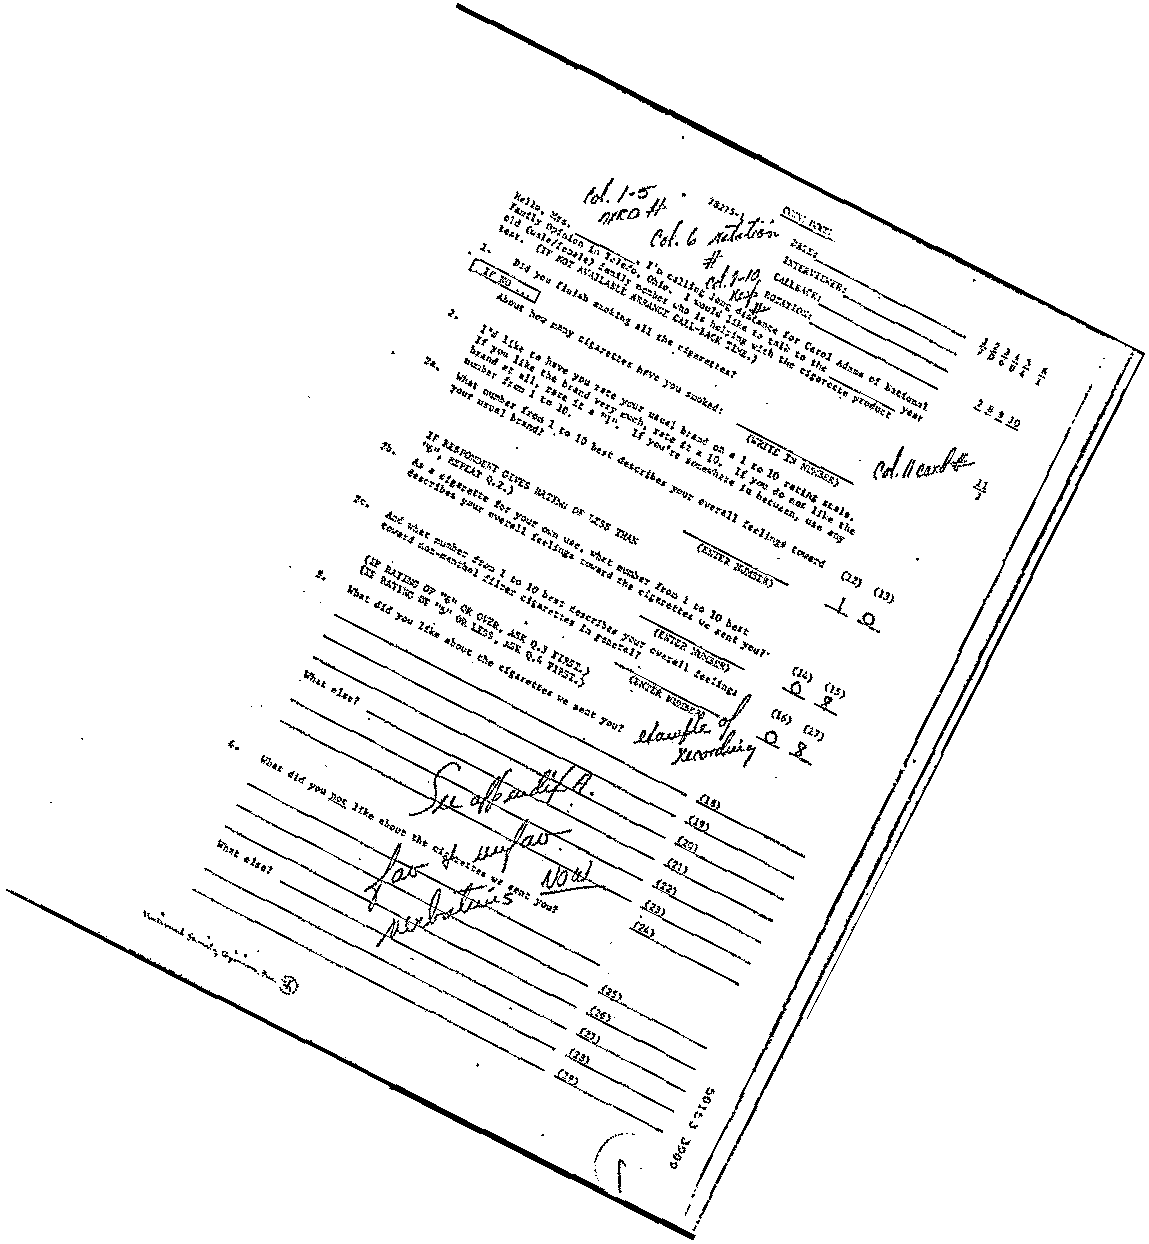 Col. 1-5
MRD #
Col. 6 rotation
#
Col. 7-10
Resp #
DATE:
INTERVIEWER:
CALLBACK:
ROTATION:
Hello, Mrs. , I'm calling long distance for Carol Adams of National
Family Opinion in Toledo, Ohio. I would like to talk to the year
old (male/female) family member who is helping with the cigarette product
test. (IF NOT AVAILABLE ARRANGE CALL-BACK TIME.)
1. Did you finish smoking all the cigarettes?
IF NO ...
About how many cigarettes have you smoked:
(WRITE IN NUMBER)
7 8 9 10
Col. 11 card #
11
2. I'd like to have you rate your usual brand on a 1 to 10 rating scale.
If you like the brand very much, rate it a 10. If you do not like the
brand at all, rate it a "1". If you're somewhere in between, use any
number from 1 to 10.
2a. What number from 1 to 10 best describes your overall feelings toward
your usual brand?
(ENTER NUMBER)
(12) (13)
1 0
IF RESPONDENT GIVES RATING OF LESS THAN
"6", REPEAT Q.2.)
2b. As a cigarette for your own use, what number from 1 to 10 best
describes your overall feelings toward the cigarettes we sent you?
(ENTER NUMBER)
(14) (15)
0 8
2c. And what number from 1 to 10 best describes your overall feelings
toward non-menthol filter cigarettes in general?
(ENTER NUMBER)
(16) (17)
0 8
(IF RATING OF "6" OR OVER, ASK Q.3 FIRST.)
(IF RATING OF "5" OR LESS, ASK Q.4 FIRST.)
3. What did you like about the cigarettes we sent you?
example of
recording
(18)
(19)
(20)
What else?
(21)
(22)
(23)
(24)
See appendix A.
fav & unfav.
Now
verbatims
4. What did you not like about the cigarettes we sent you?
(25)
(26)
(27)
What else?
(28)
(29)
National Family Opinion, Inc.
1